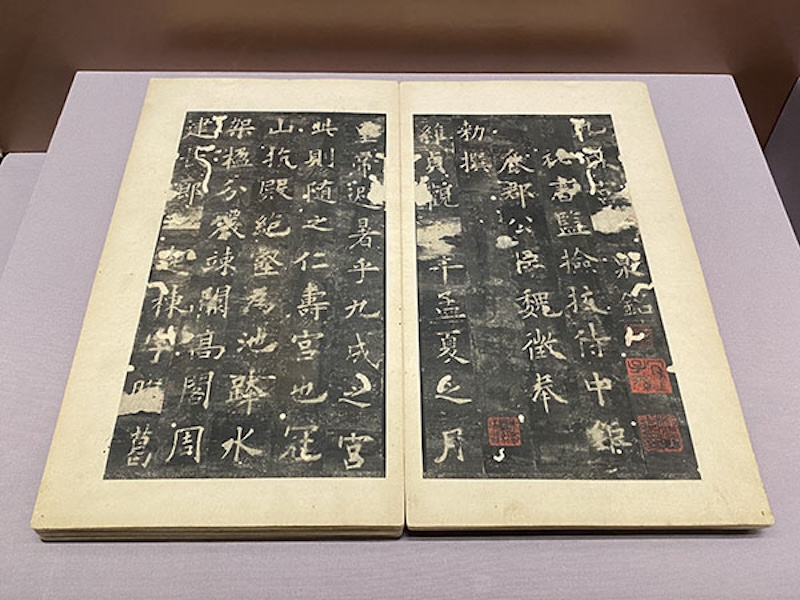 九宮泉銘
秘書監檢挍侍中鉅
鹿郡公臣魏徵奉
勑撰
維貞觀年孟夏之月
皇帝避暑乎九成之宮
此則隨之仁壽宮也冠
山抗殿絕壑為池跨水
架楹分巖竦闕高閣周
建廊四起棟宇膠葛